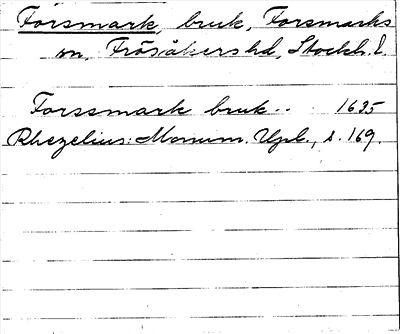 Forsmark, bruk, Forsmarks
sn, Frösåkers hd, Stockh. l.
Forssmark bruk.. 1635
Rhezelius: Monum. Upl., s. 169.